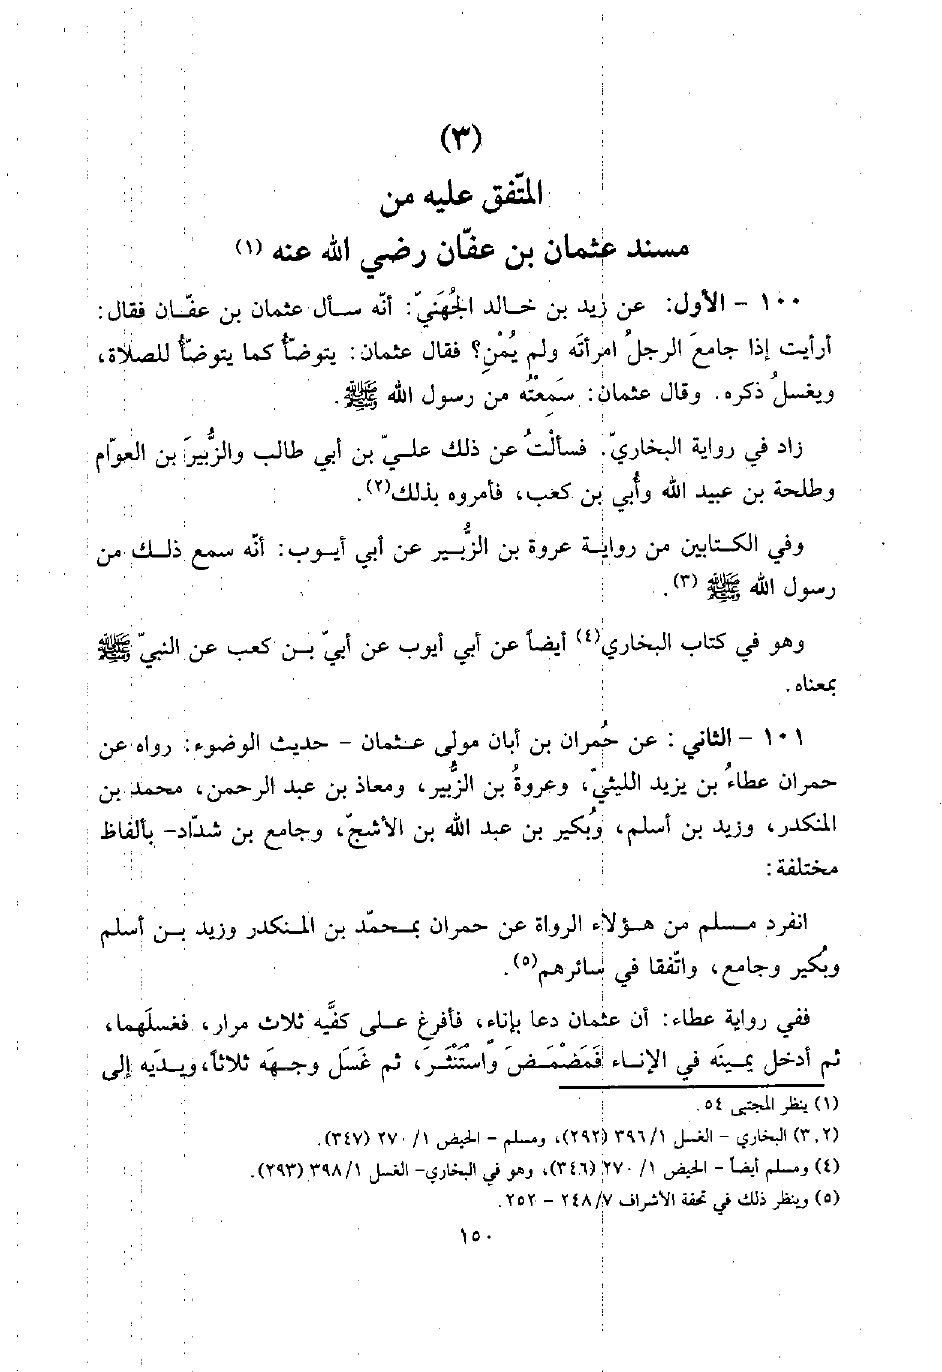 (٣)
المتّفق عليه من
مسند عثمان بن عفّان رضي الله عنه (١)
١٠٠ – الأول: عن زيد بن خالد الجُهَنيّ: أنّه سأل عثمان بن عفّان فقال:
أرأيت إذا جامعَ الرجلُ امرأتَه ولم يُمْنِ؟ فقال عثمان: يتوضّأُ كما يتوضّأُ للصلاة،
ويغسلُ ذكره. وقال عثمان: سَمعتُه من رسول الله ﷺ.
زاد في رواية البخاريّ. فسألْتُ عن ذلك عليّ بن أبي طالب والزُّبيرَ بن العوّام
وطلحة بن عبيد الله وأُبي بن كعب، فأمروه بذلك(٢).
وفي الكتابين من رواية عروة بن الزُّبير عن أبي أيوب: أنّه سمع ذلك من
رسول الله ﷺ (٣).
وهو في كتاب البخاري(٤) أيضاً عن أبي أيوب عن أبيّ بن كعب عن النبيّ ﷺ
بمعناه.
١٠١ – الثاني: عن حُمران بن أبان مولى عثمان – حديث الوضوء: رواه عن
حمران عطاءُ بن يزيد الليثيّ، وعروةُ بن الزُّبير، ومعاذ بن عبد الرحمن، محمد بن
المنكدر، وزيد بن أسلم، وبُكير بن عبد الله بن الأشجّ، وجامع بن شدّاد– بألفاظ
مختلفة:
انفرد مسلم من هؤلاء الرواة عن حمران بمحمّد بن المنكدر وزيد بن أسلم
وبُكير وجامع، واتّفقا في سائرهم(٥).
ففي رواية عطاء: أن عثمان دعا بإناء، فأفرغ على كفَّيه ثلاث مرار، فغسلَهما،
ثم أدخل يمينَه في الإناء فَمَضْمَضَ واسْتَنْثَرَ، ثم غَسَل وجهَه ثلاثاً، ويدَيه إلى
(١) ينظر المجتبى ٥٤.
(٢,٣) البخاري – الغسل ٣٩٦/١ (٢٩٢)، ومسلم – الحيض ٢٧٠/١ (٣٤٧).
(٤) ومسلم أيضاً – الحيض ٢٧٠/١ (٣٤٦)، وهو في البخاري– الغسل ٣٩٨/١ (٢٩٣).
(٥) وينظر ذلك في تحفة الأشراف ٢٤٨/٧ – ٢٥٢.
١٥٠